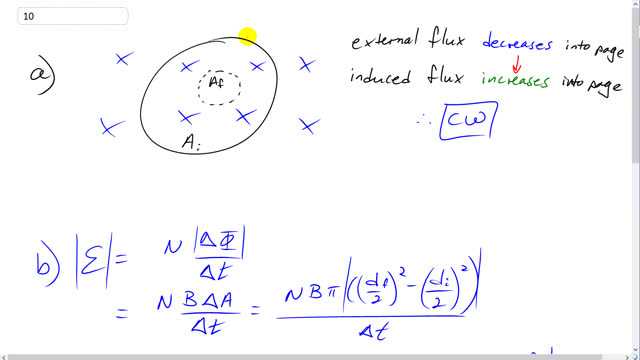 10
a)
× × × ×
Af
× × × ×
Ai
external flux decreases into page
↓
induced flux increases into page
∴ CW
b) |ε| = N |ΔΦ| / Δt
= N B ΔA / Δt = N B π |((df/2)² - (di/2)²)| / Δt